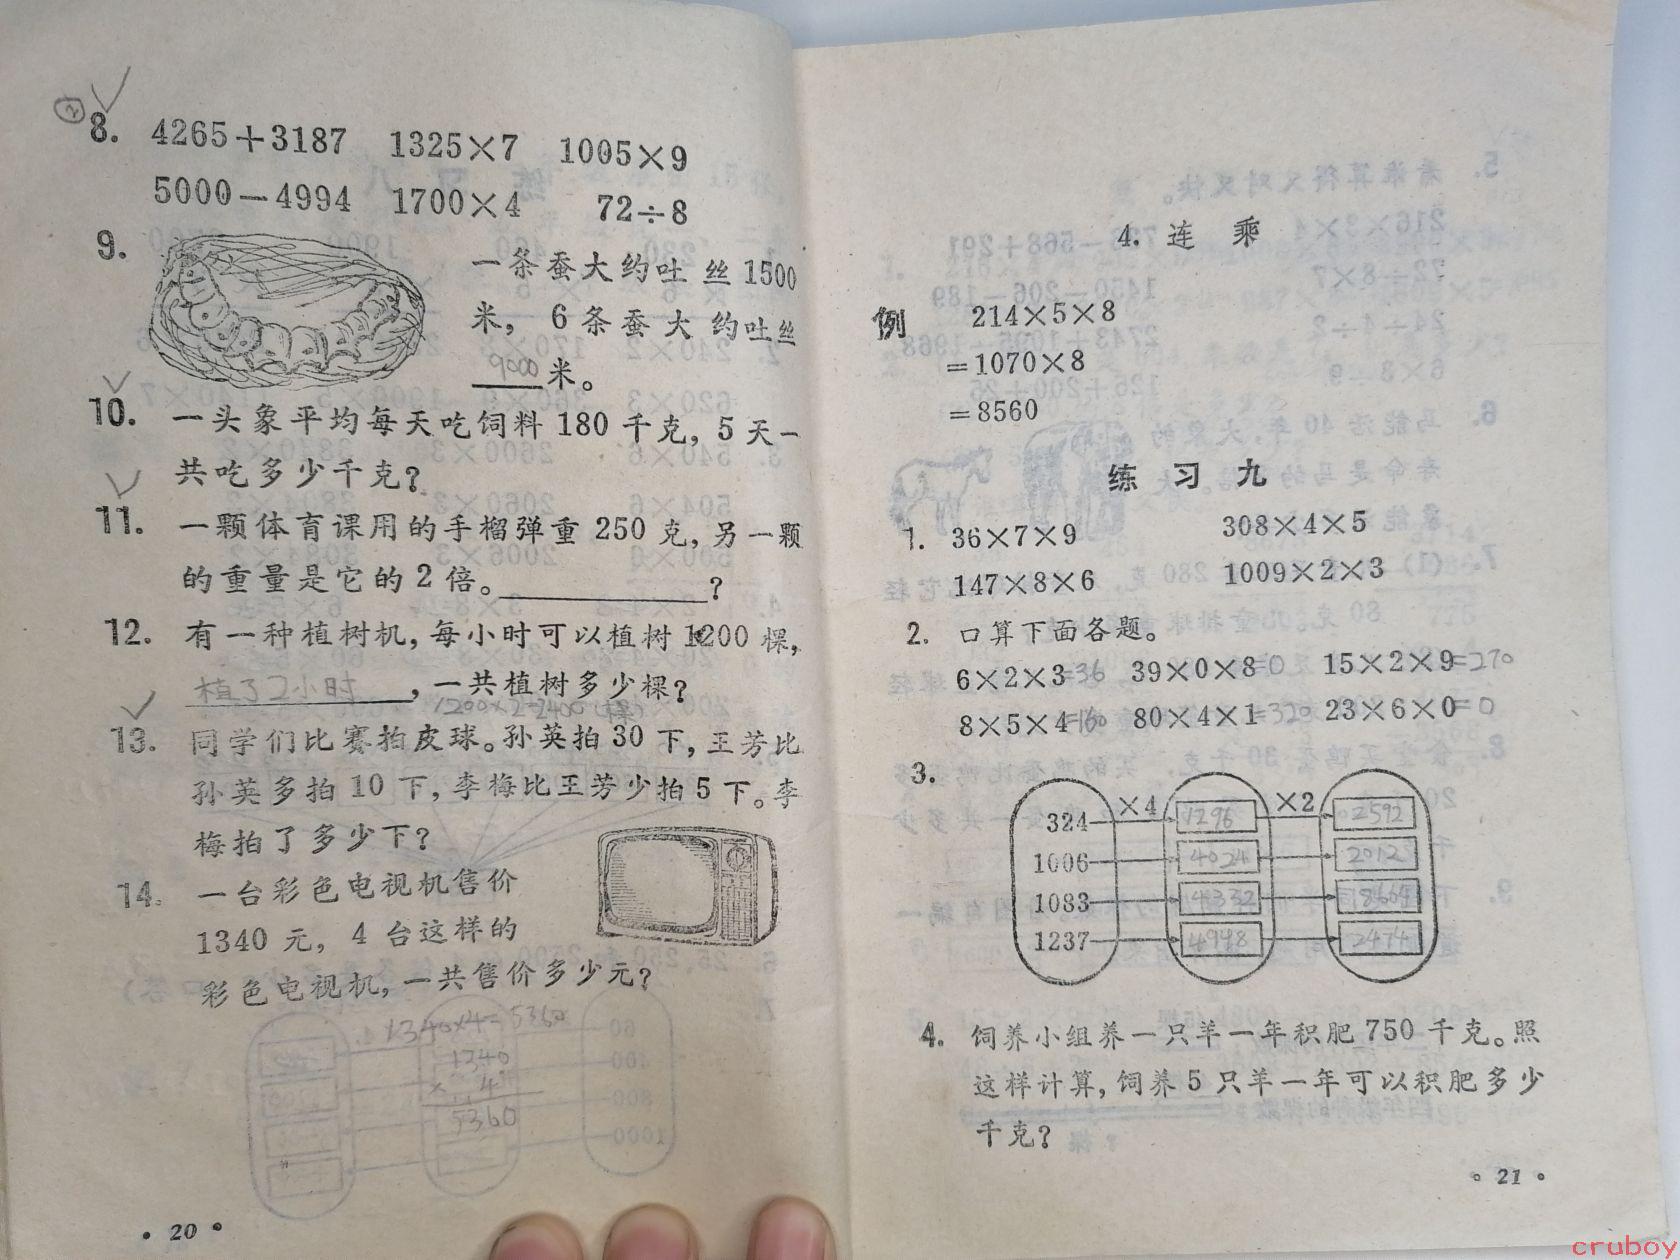 ②
8. 4265+3187 1325×7 1005×9
5000-4994 1700×4 72÷8
9. 一条蚕大约吐丝1500
米，6条蚕大约吐丝
9000米。
10. 一头象平均每天吃饲料180千克，5天一
共吃多少千克？
11. 一颗体育课用的手榴弹重250克，另一颗
的重量是它的2倍。________？
12. 有一种植树机，每小时可以植树1200棵，
植了2小时，一共植树多少棵？
1200×2=2400（棵）
13. 同学们比赛拍皮球。孙英拍30下，王芳比
孙英多拍10下，李梅比王芳少拍5下。李
梅拍了多少下？
14. 一台彩色电视机售价
1340元，4台这样的
彩色电视机，一共售价多少元？
1340×4=5360
1340
× 4
5360
· 20 ·
4. 连乘
例 214×5×8
=1070×8
=8560
练习九
1. 36×7×9 308×4×5
147×8×6 1009×2×3
2. 口算下面各题。
6×2×3=36 39×0×8=0 15×2×9=270
8×5×4=160 80×4×1=320 23×6×0=0
3.
×4 ×2
324 1296 2592
1006 4024 2012
1083 4332 8664
1237 4948 2474
4. 饲养小组养一只羊一年积肥750千克。照
这样计算，饲养5只羊一年可以积肥多少
千克？
· 21 ·
cruboy